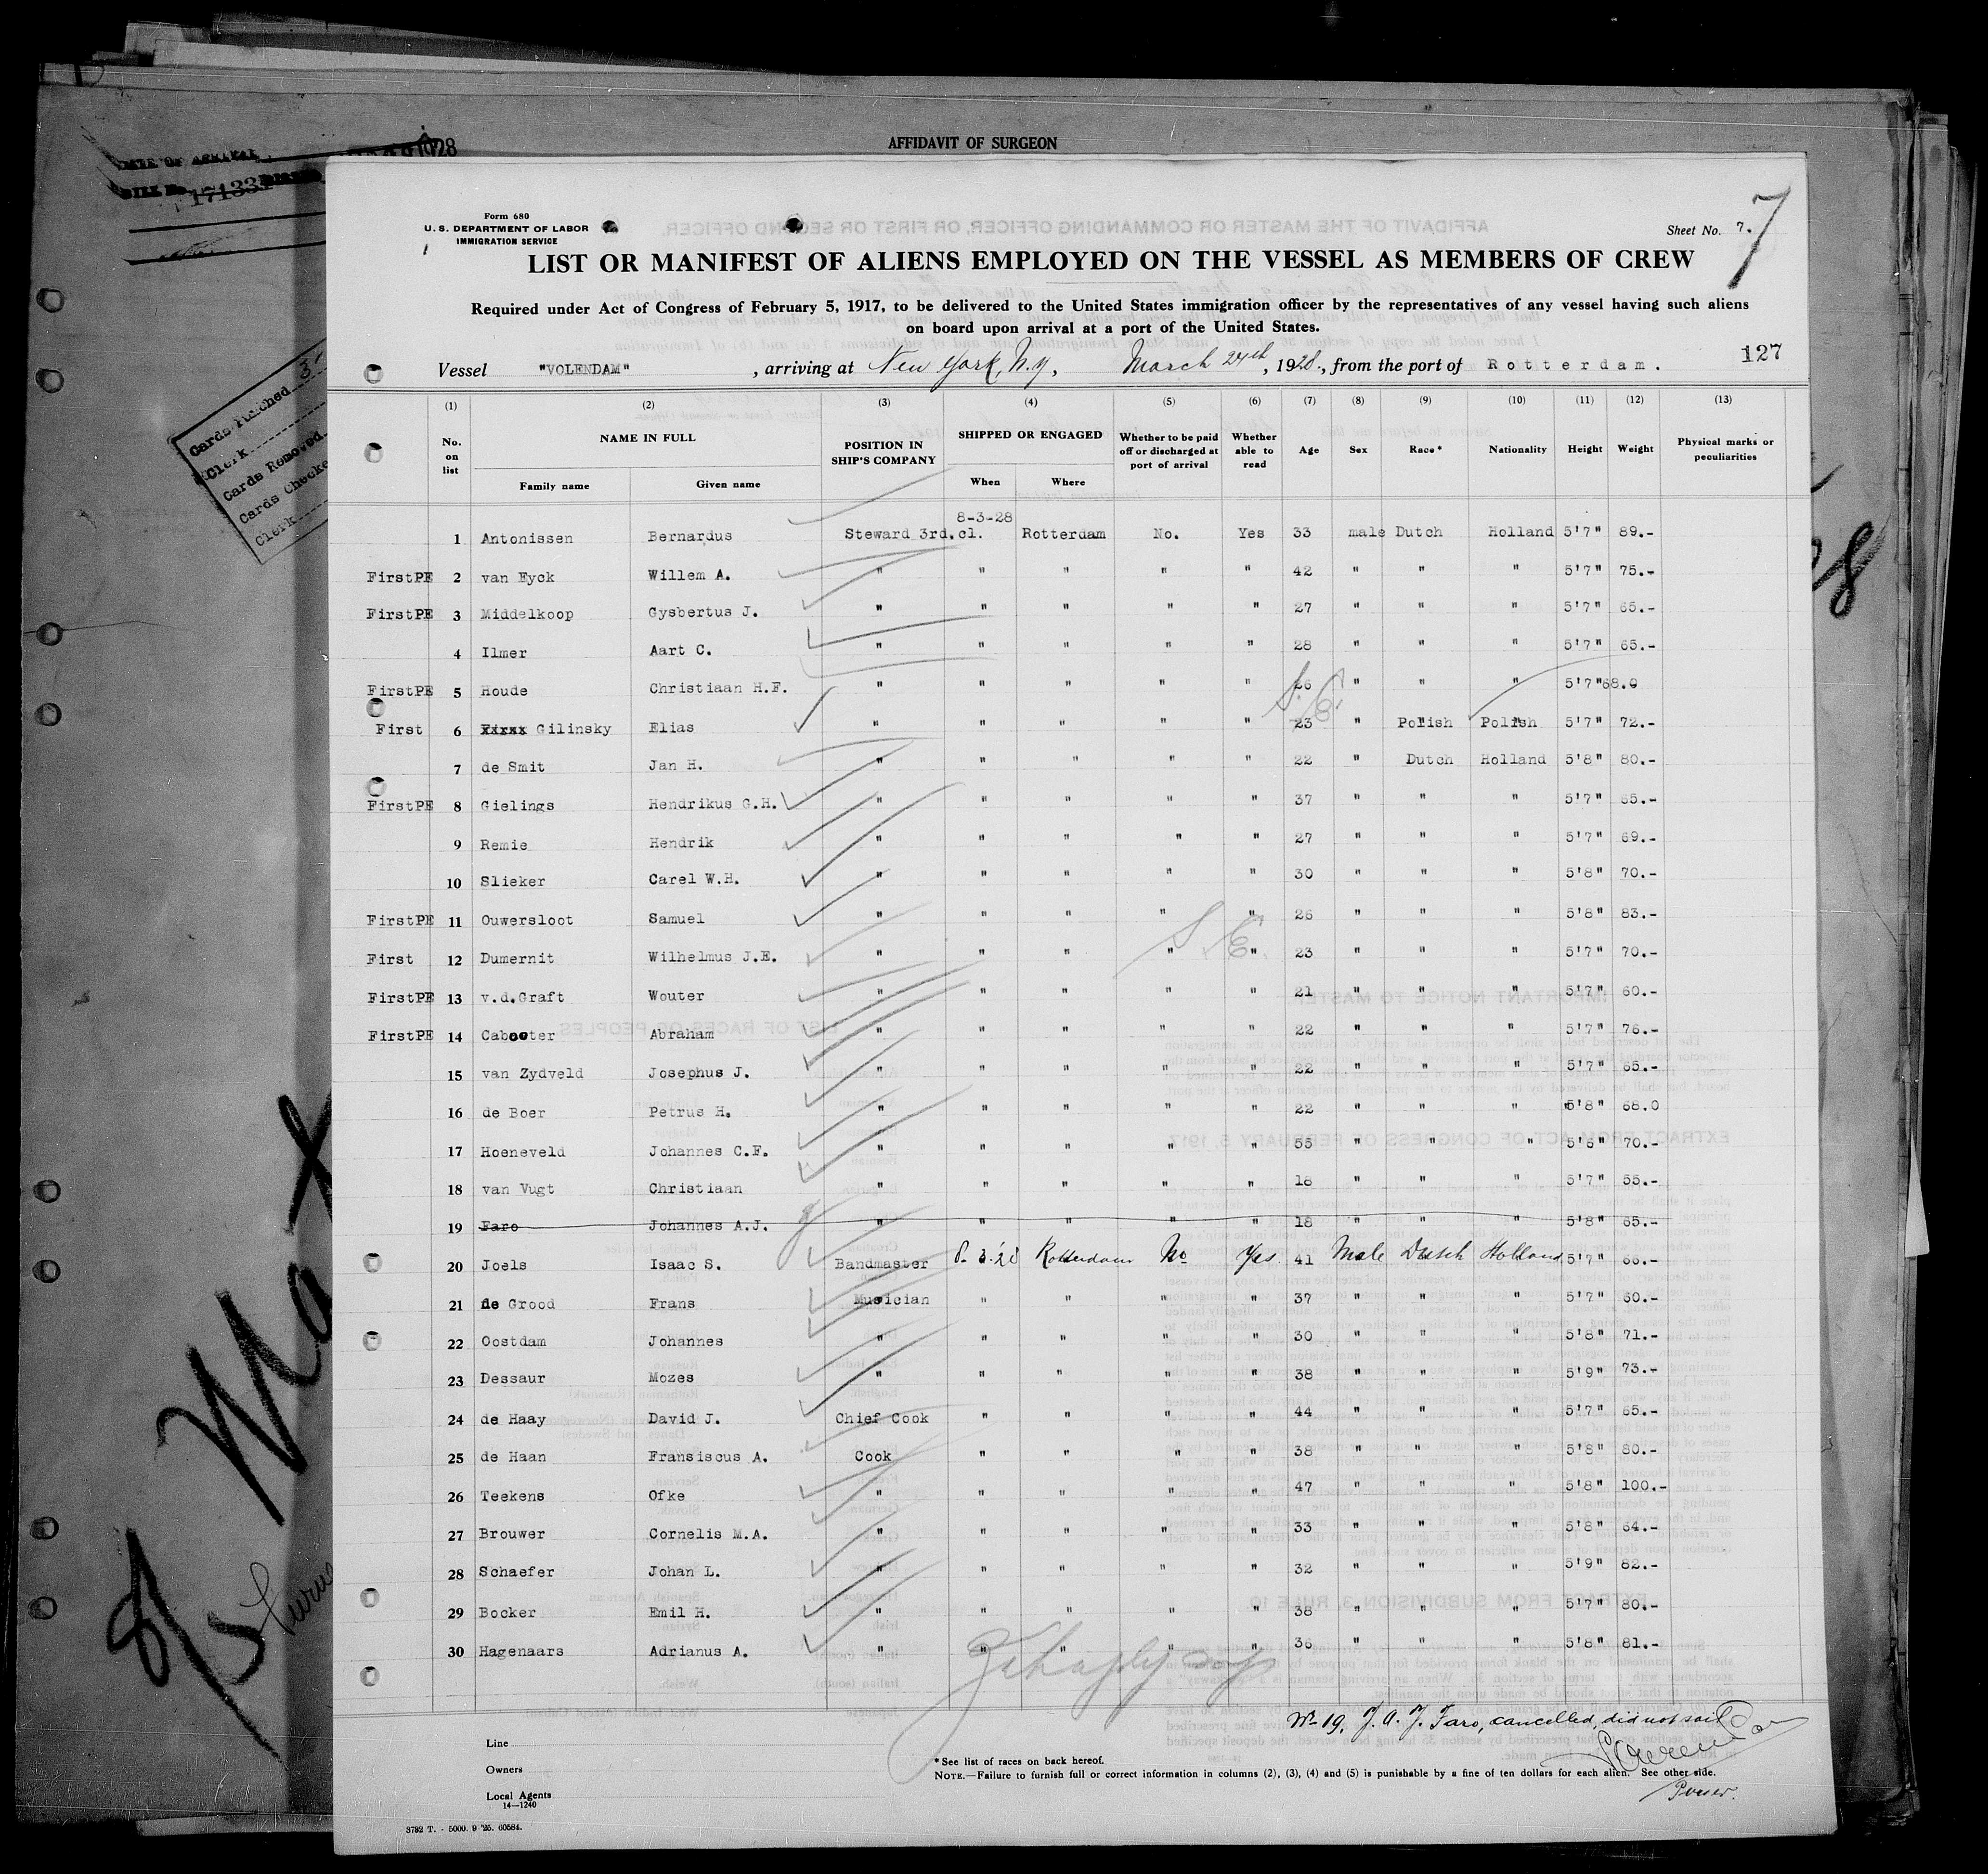 AFFIDAVIT OF SURGEON
1928
17133
Cards Punched 3
Clerk
Cards Removed
Cards Checke
Clerk
Form 680
U. S. DEPARTMENT OF LABOR
IMMIGRATION SERVICE
Sheet No. 7.
7
LIST OR MANIFEST OF ALIENS EMPLOYED ON THE VESSEL AS MEMBERS OF CREW
Required under Act of Congress of February 5, 1917, to be delivered to the United States immigration officer by the representatives of any vessel having such aliens
on board upon arrival at a port of the United States.
127
Vessel "VOLENDAM", arriving at New York, N.Y., March 24th, 1928., from the port of Rotterdam.
(1) (2) (3) (4) (5) (6) (7) (8) (9) (10) (11) (12) (13)
No. on list NAME IN FULL Family name Given name POSITION IN SHIP'S COMPANY SHIPPED OR ENGAGED When Where Whether to be paid off or discharged at port of arrival Whether able to read Age Sex Race* Nationality Height Weight Physical marks or peculiarities
8-3-28
1 Antonissen Bernardus Steward 3rd.cl. Rotterdam No. Yes 33 male Dutch Holland 5'7" 89.-
FirstPE 2 van Eyck Willem A. " " " " " 42 " " " 5'7" 75.-
FirstPE 3 Middelkoop Gysbertus J. " " " " " 27 " " " 5'7" 65.-
4 Ilmer Aart C. " " " " " 28 " " " 5'7" 65.-
FirstPE 5 Houde Christiaan H.F. " " " " " 26 " " " 5'7" 68.0
First 6 Gilinsky Elias " " " " " 23 " Polish Polish 5'7" 72.-
7 de Smit Jan H. " " " " " 22 " Dutch Holland 5'8" 80.-
FirstPE 8 Gielings Hendrikus G.H. " " " " " 37 " " " 5'7" 65.-
9 Remie Hendrik " " " " " 27 " " " 5'7" 69.-
10 Slieker Carel W.H. " " " " " 30 " " " 5'8" 70.-
FirstPE 11 Ouwersloot Samuel " " " " " 26 " " " 5'8" 83.-
First 12 Dumernit Wilhelmus J.E. " " " " " 23 " " " 5'7" 70.-
FirstPE 13 v.d.Graft Wouter " " " " " 21 " " " 5'7" 60.-
FirstPE 14 Cabooter Abraham " " " " " 22 " " " 5'7" 76.-
15 van Zydveld Josephus J. " " " " " 22 " " " 5'7" 65.-
16 de Boer Petrus H. " " " " " 22 " " " 5'8" 68.0
17 Hoeneveld Johannes C.F. " " " " " 55 " " " 5'6" 70.-
18 van Vugt Christiaan " " " " " 18 " " " 5'7" 55.-
19 Faro Johannes A.J. " " " " " 18 " " " 5'8" 65.-
20 Joels Isaac S. Bandmaster 8.3.'28 Rotterdam No Yes 41 Male Dutch Holland 5'7" 66.-
21 de Grood Frans Musician " " " " 37 " " " 5'7" 60.-
22 Oostdam Johannes " " " " " 30 " " " 5'8" 71.-
23 Dessaur Mozes " " " " " 38 " " " 5'9" 73.-
24 de Haay David J. Chief Cook " " " " 44 " " " 5'7" 65.-
25 de Haan Fransiscus A. Cook " " " " 38 " " " 5'8" 80.-
26 Teekens Ofke " " " " " 47 " " " 5'8" 100.-
27 Brouwer Cornelis M.A. " " " " " 33 " " " 5'8" 64.-
28 Schaefer Johan L. " " " " " 32 " " " 5'9" 82.-
29 Booker Emil H. " " " " " 38 " " " 5'7" 80.-
30 Hagenaars Adrianus A. " " " " " 36 " " " 5'8" 81.-
No 19, J. A. J. Faro, cancelled, did not sail
Line
Owners
Local Agents
14—1240
* See list of races on back hereof.
NOTE.—Failure to furnish full or correct information in columns (2), (3), (4) and (5) is punishable by a fine of ten dollars for each alien. See other side.
Purser.
3782 T. - 5000. 9 '25. 60584.